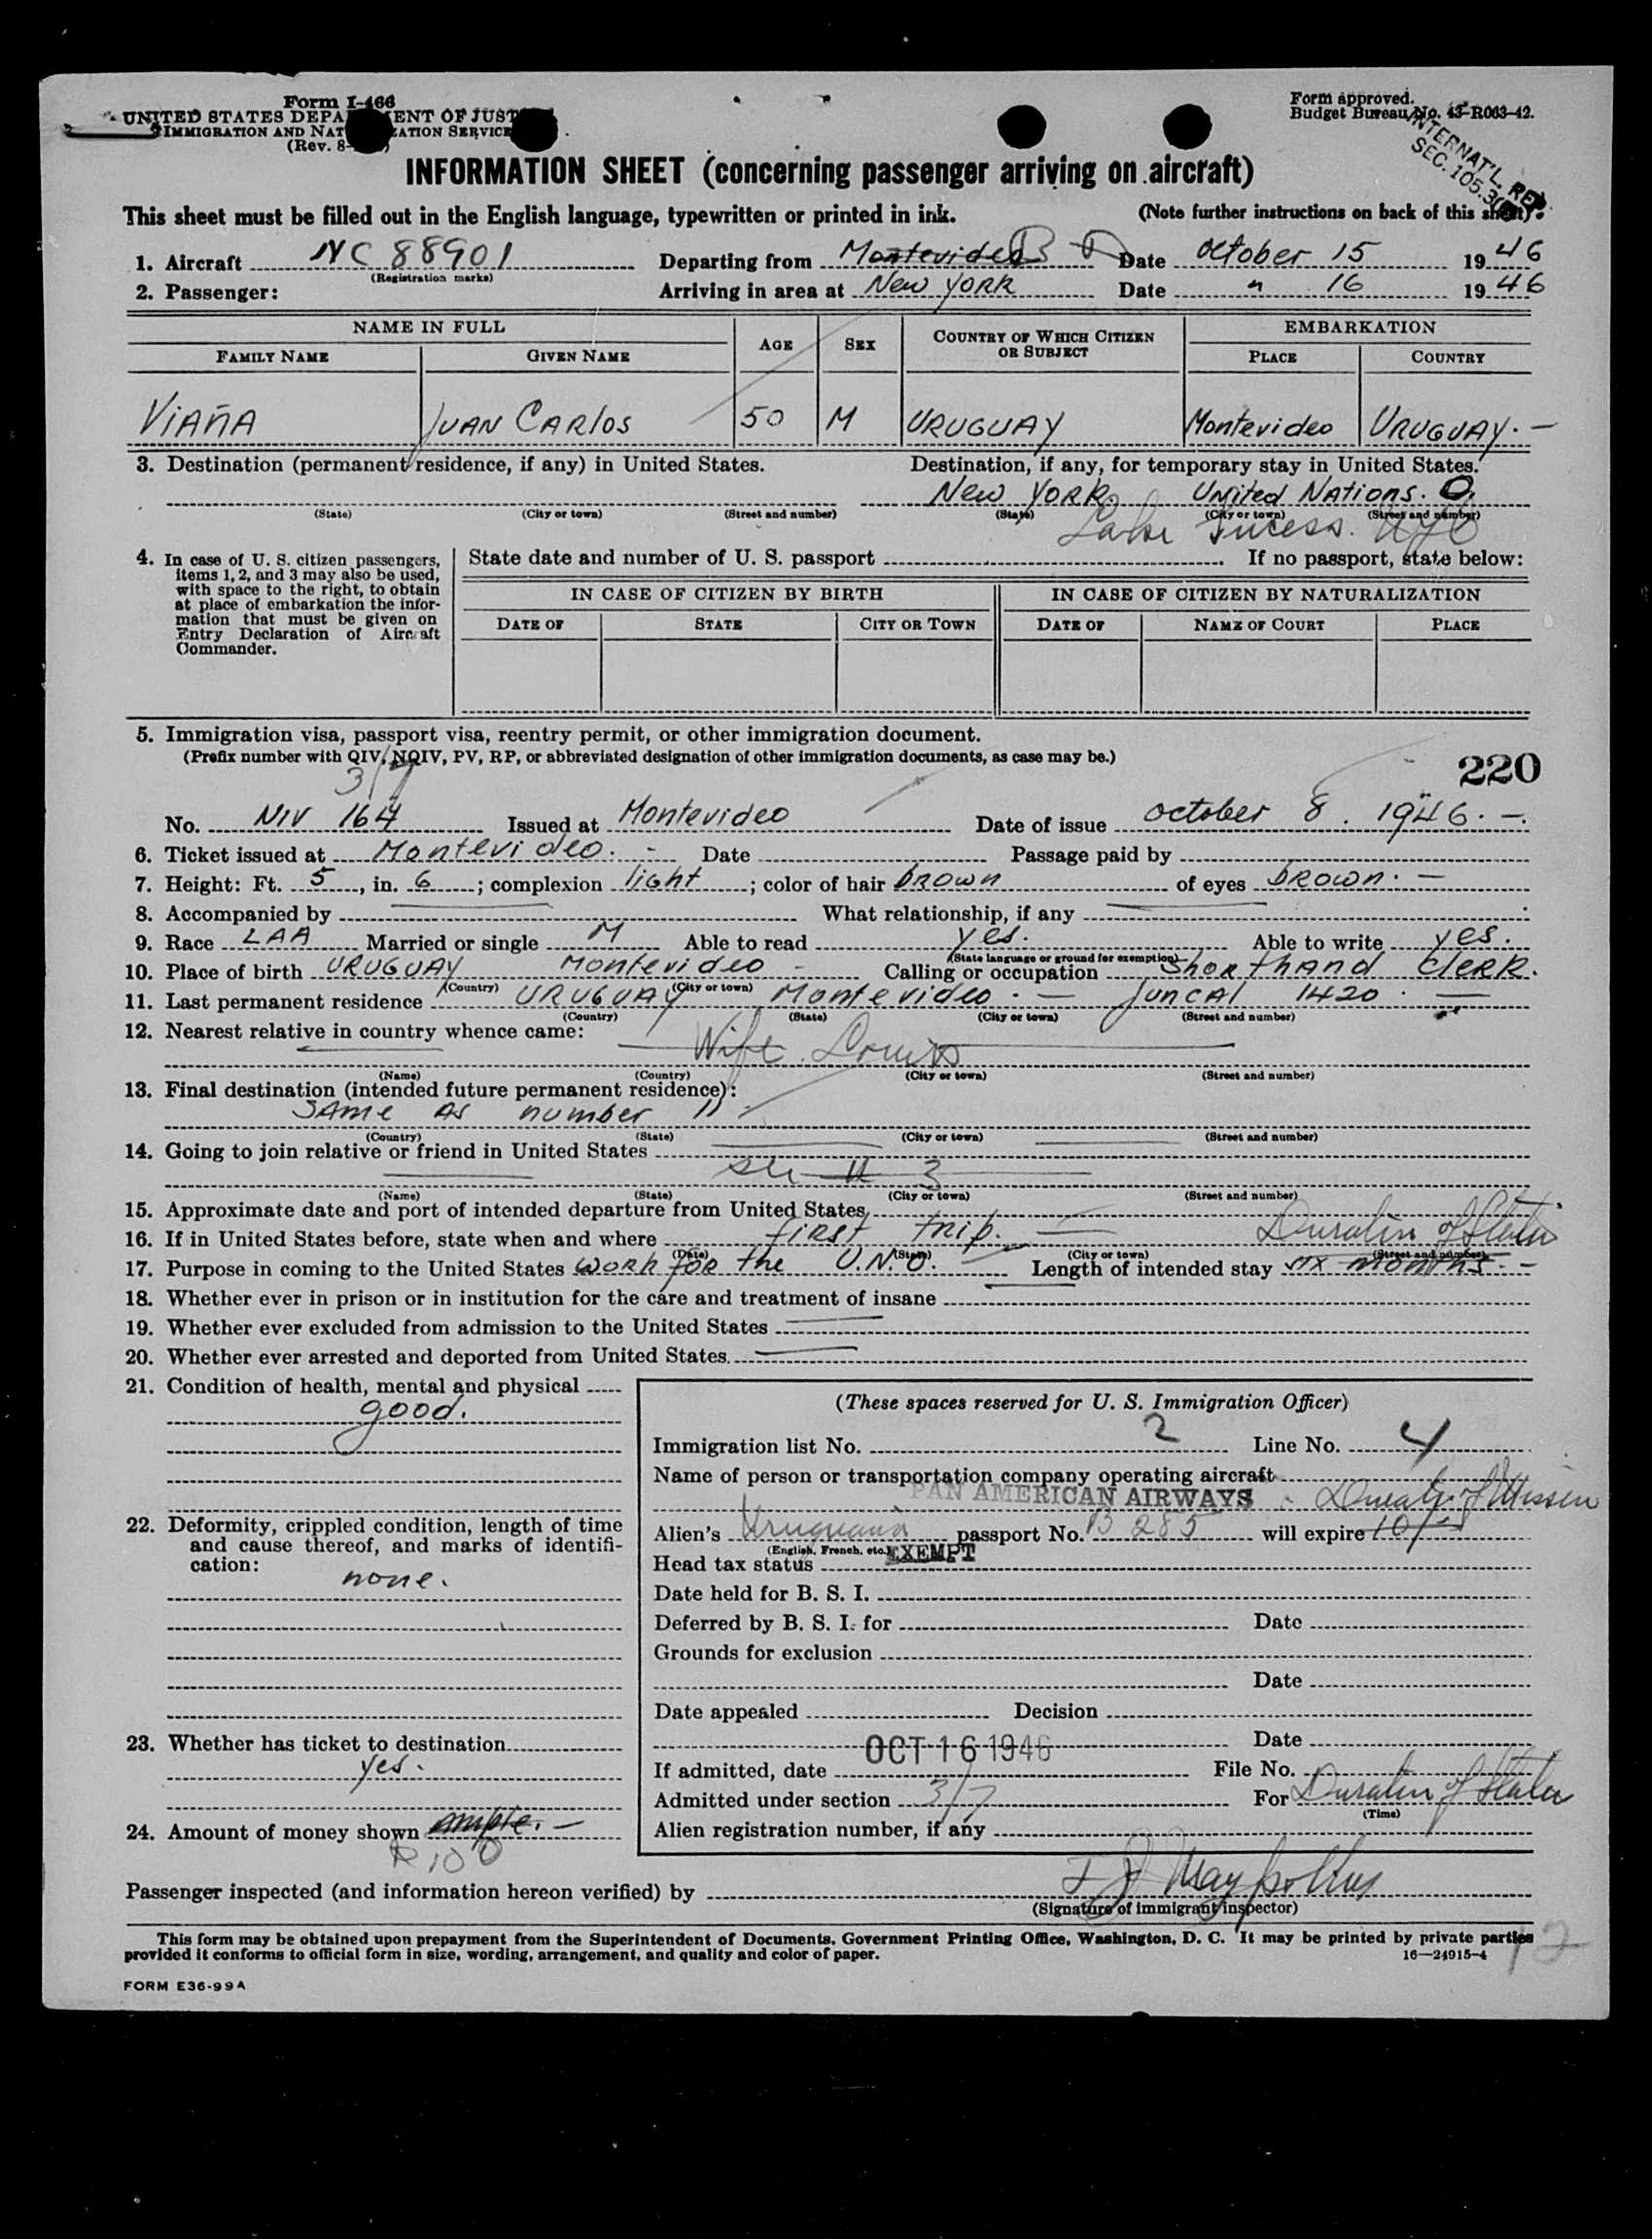 Form I-466
UNITED STATES DEPARTMENT OF JUSTICE
IMMIGRATION AND NATURALIZATION SERVICE
(Rev. 8-
Form approved.
Budget Bureau No. 43-R063-42.
INTERNAT'L. REP.
SEC. 105.3
INFORMATION SHEET (concerning passenger arriving on aircraft)
This sheet must be filled out in the English language, typewritten or printed in ink. (Note further instructions on back of this sheet).
1. Aircraft NC 88901 Departing from Montevideo Date October 15 1946
(Registration marks)
2. Passenger: Arriving in area at New York Date " 16 1946
NAME IN FULL AGE SEX COUNTRY OF WHICH CITIZEN OR SUBJECT EMBARKATION
FAMILY NAME GIVEN NAME PLACE COUNTRY
Viaña Juan Carlos 50 M URUGUAY Montevideo URUGUAY. —
3. Destination (permanent residence, if any) in United States. Destination, if any, for temporary stay in United States.
New York. United Nations. O.
(State) (City or town) (Street and number) (State) (City or town) (Street and number)
Lake Sucess. NYC
4. In case of U. S. citizen passengers, items 1, 2, and 3 may also be used, with space to the right, to obtain at place of embarkation the information that must be given on Entry Declaration of Aircraft Commander.
State date and number of U. S. passport If no passport, state below:
IN CASE OF CITIZEN BY BIRTH IN CASE OF CITIZEN BY NATURALIZATION
DATE OF STATE CITY OR TOWN DATE OF NAME OF COURT PLACE
5. Immigration visa, passport visa, reentry permit, or other immigration document.
(Prefix number with QIV, NQIV, PV, RP, or abbreviated designation of other immigration documents, as case may be.)
220
3/7
No. NIV 164 Issued at Montevideo Date of issue October 8. 1946. —.
6. Ticket issued at Montevideo. - Date Passage paid by
7. Height: Ft. 5, in. 6; complexion light; color of hair brown of eyes brown. —
8. Accompanied by What relationship, if any
9. Race LAA Married or single M Able to read yes. Able to write yes.
(State language or ground for exemption)
10. Place of birth URUGUAY Montevideo - Calling or occupation Shorthand Clerk.
(Country) (City or town)
11. Last permanent residence URUGUAY Montevideo. — Juncal 1420. —
(Country) (State) (City or town) (Street and number)
12. Nearest relative in country whence came:
Wife
(Name) (Country) (City or town) (Street and number)
13. Final destination (intended future permanent residence):
SAME AS number 11
(Country) (State) (City or town) (Street and number)
14. Going to join relative or friend in United States
3
(Name) (State) (City or town) (Street and number)
15. Approximate date and port of intended departure from United States
16. If in United States before, state when and where first trip. Duration of Status
(Date) (State) (City or town) (Street and number)
17. Purpose in coming to the United States Work for the U.N.O. Length of intended stay six months. —
18. Whether ever in prison or in institution for the care and treatment of insane
19. Whether ever excluded from admission to the United States
20. Whether ever arrested and deported from United States
21. Condition of health, mental and physical
good.
22. Deformity, crippled condition, length of time and cause thereof, and marks of identification:
none.
23. Whether has ticket to destination
yes.
24. Amount of money shown ample. —
100
(These spaces reserved for U. S. Immigration Officer)
Immigration list No. 2 Line No. 4
Name of person or transportation company operating aircraft
PAN AMERICAN AIRWAYS
Alien's passport No. B 285 will expire
(English, French, etc.)
Head tax status EXEMPT
Date held for B. S. I.
Deferred by B. S. I. for Date
Grounds for exclusion
Date
Date appealed Decision
Date
If admitted, date OCT 16 1946 File No.
Admitted under section 3/7 For Duration of Status
(Time)
Alien registration number, if any
Passenger inspected (and information hereon verified) by
(Signature of immigrant inspector)
This form may be obtained upon prepayment from the Superintendent of Documents, Government Printing Office, Washington, D. C. It may be printed by private parties
provided it conforms to official form in size, wording, arrangement, and quality and color of paper. 16—24915-4
12
FORM E36-99A